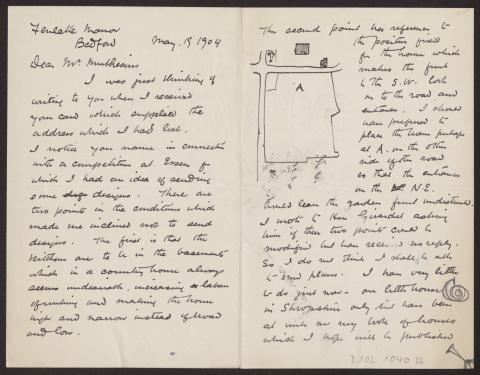 Fenlake Manor
Bedford May. 15 1904
Dear Mr. Muthesius
I was just thinking of
writing to you when I received
your card which supplied the
address which I had lost.
I notice your name in connection
with a competition at Essen for
which I had an idea of sending
some designs. There are
two points in the conditions which
made me inclined not to send
designs. The first is that the
kitchens are to be in the basements
which in a country house always
seems undesirable, increasing labour
of running and making the house
high and narrow instead of broad
and low.
The second point has reference to
the position fixed
for the house which
makes the front
to the S.W. look
on to the road and
entrance. I should
have preferred to
place the house perhaps
at A. on the other
side of the road
so that the entrance
on the N.E.
would leave the garden front undisturbed.
I wrote to Herr asking
him if these two points could be
modified but have received no reply.
So I do not think I shall be able
to send plans. I have very little
to do just now – one little house
in Shropshire only but have been
at work on my book of houses
which I hope will be published
A
S
D 102 1040 A